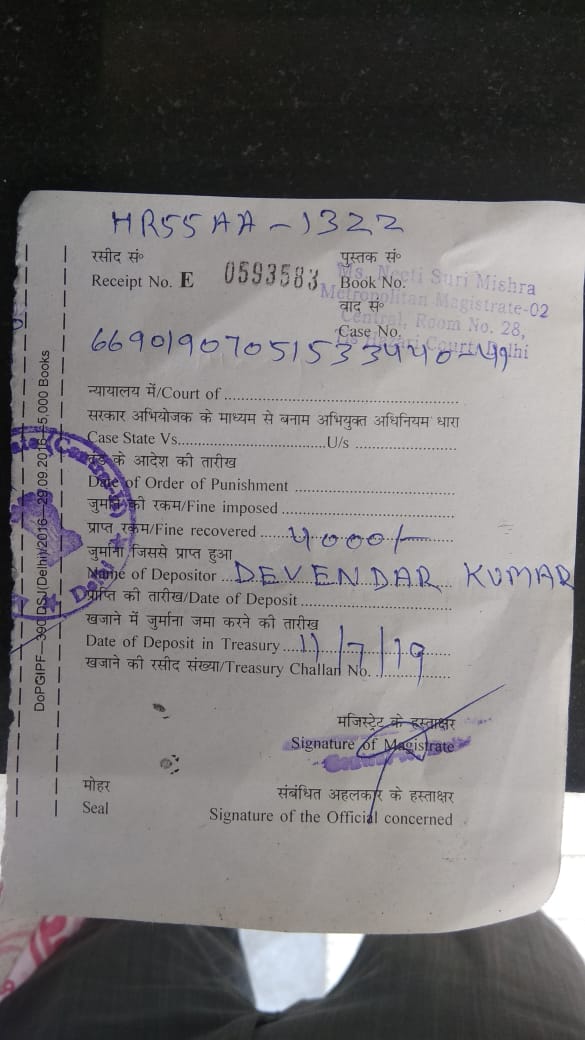 HR55AA-1322
रसीद सं० पुस्तक सं०
Receipt No. E 0593583 Book No.
Ms. Neeti Suri Mishra
Metropolitan Magistrate-02
Central, Room No. 28,
Courts, Delhi
वाद सं०
Case No.
न्यायालय में/Court of
सरकार अभियोजक के माध्यम से बनाम अभियुक्त अधिनियम धारा
Case State Vs. U/s
के आदेश की तारीख
Date of Order of Punishment
जुर्माने की रकम/Fine imposed
प्राप्त रकम/Fine recovered 4000/-
जुर्माना जिससे प्राप्त हुआ
Name of Depositor DEVENDAR KUMAR
प्राप्ति की तारीख/Date of Deposit
खजाने में जुर्माना जमा करने की तारीख
Date of Deposit in Treasury 11/7/19
खजाने की रसीद संख्या/Treasury Challan No.
मजिस्ट्रेट के हस्ताक्षर
Signature of Magistrate
मोहर संबंधित अहलकार के हस्ताक्षर
Seal Signature of the Official concerned
Delhi